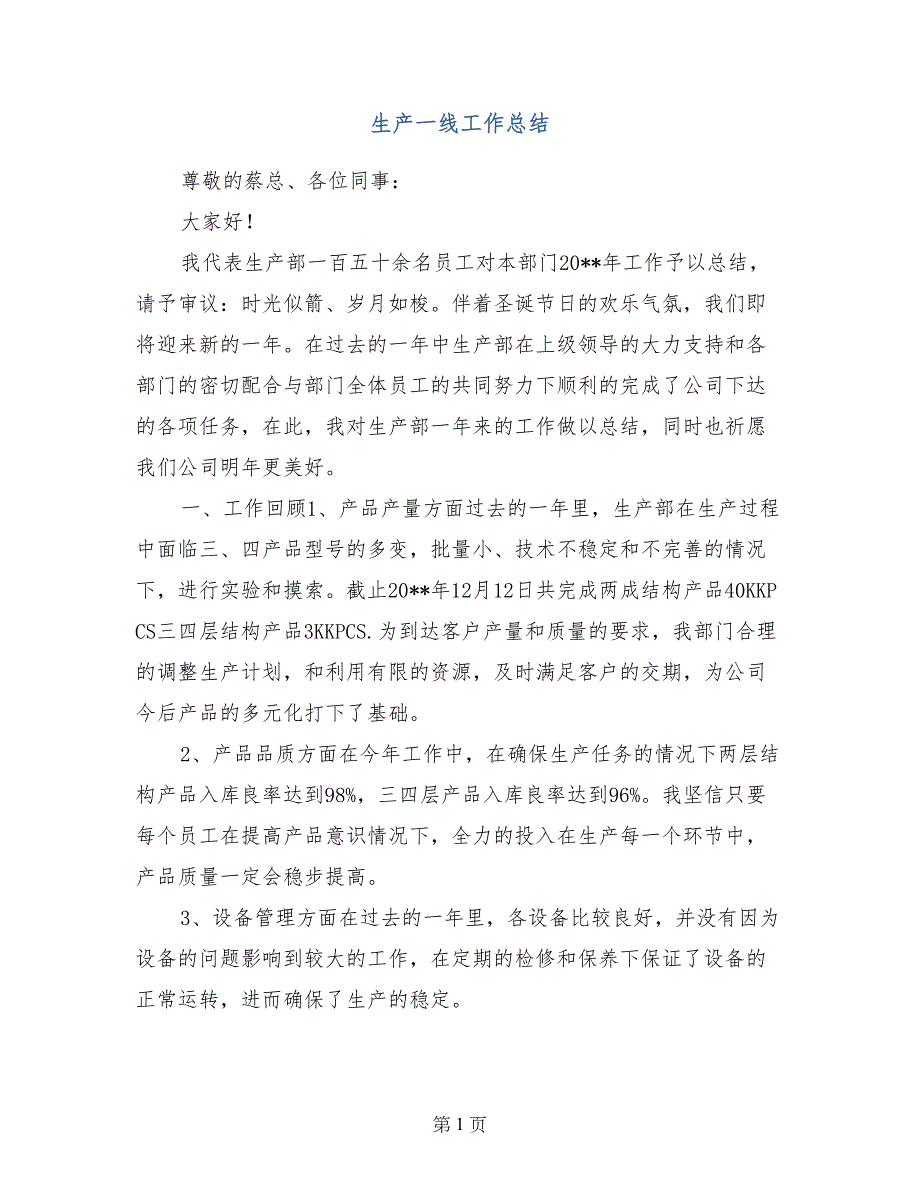 生产一线工作总结
尊敬的蔡总、各位同事：
大家好！
我代表生产部一百五十余名员工对本部门20**年工作予以总结，
请予审议：时光似箭、岁月如梭。伴着圣诞节日的欢乐气氛，我们即
将迎来新的一年。在过去的一年中生产部在上级领导的大力支持和各
部门的密切配合与部门全体员工的共同努力下顺利的完成了公司下达
的各项任务，在此，我对生产部一年来的工作做以总结，同时也祈愿
我们公司明年更美好。
一、工作回顾1、产品产量方面过去的一年里，生产部在生产过程
中面临三、四产品型号的多变，批量小、技术不稳定和不完善的情况
下，进行实验和摸索。截止20**年12月12日共完成两成结构产品40KKP
CS三四层结构产品3KKPCS.为到达客户产量和质量的要求，我部门合理
的调整生产计划，和利用有限的资源，及时满足客户的交期，为公司
今后产品的多元化打下了基础。
2、产品品质方面在今年工作中，在确保生产任务的情况下两层结
构产品入库良率达到98%，三四层产品入库良率达到96%。我坚信只要
每个员工在提高产品意识情况下，全力的投入在生产每一个环节中，
产品质量一定会稳步提高。
3、设备管理方面在过去的一年里，各设备比较良好，并没有因为
设备的问题影响到较大的工作，在定期的检修和保养下保证了设备的
正常运转，进而确保了生产的稳定。
第 1 页